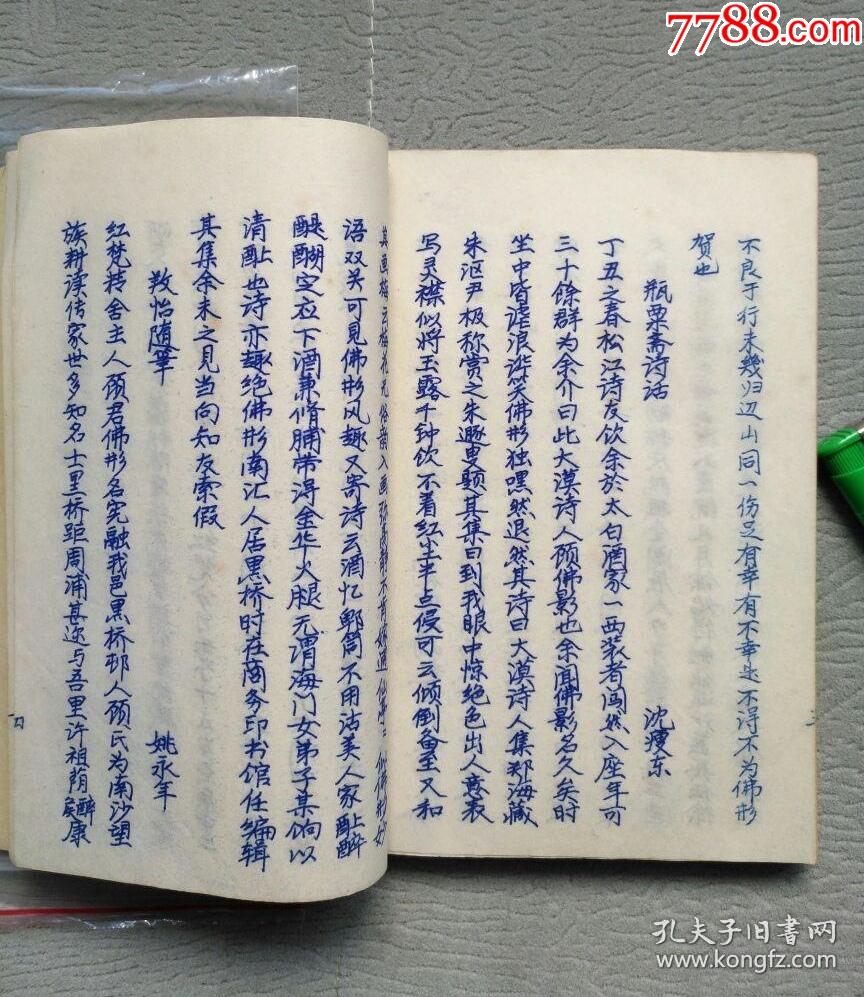 7788.com
不良于行未幾归辺山同一伤足有幸有不幸是不得不为佛影
贺也
瓶粟斋诗话 沈瘦东
丁丑之春松江诗友饮余於太白酒家一西装者闯然入座年可
三十餘群为余介曰此大漠诗人顾佛影也余闻佛影名久矣时
坐中皆谑浪谐笑佛影独嘿然退然其诗曰大漠诗人集郑海藏
朱沤尹极称赏之朱遯叟题其集曰到我眼中惊绝色出人意表
写灵襟似将玉露千钟饮不着红尘半点侵可云倾倒备至又和
其画梅云 入画 不
语双关可见佛影风趣又寄诗云酒忆郫筒不用沽美人家酢醉
醍醐定应下酒兼脩脯带得金华火腿无谓海门女弟子某饷以
清酢也诗亦趣绝佛影南汇人居黑桥时在商务印书馆任编辑
其集余未之见当向知友索假
教怡随笔 姚永年
红梵精舍主人顾君佛影名宪融我邑黑桥邨人顾氏为南沙望
族耕读传家世多知名士里桥距周浦甚迩与吾里许祖荫醉康
三
四
孔夫子旧书网
www.kongfz.com